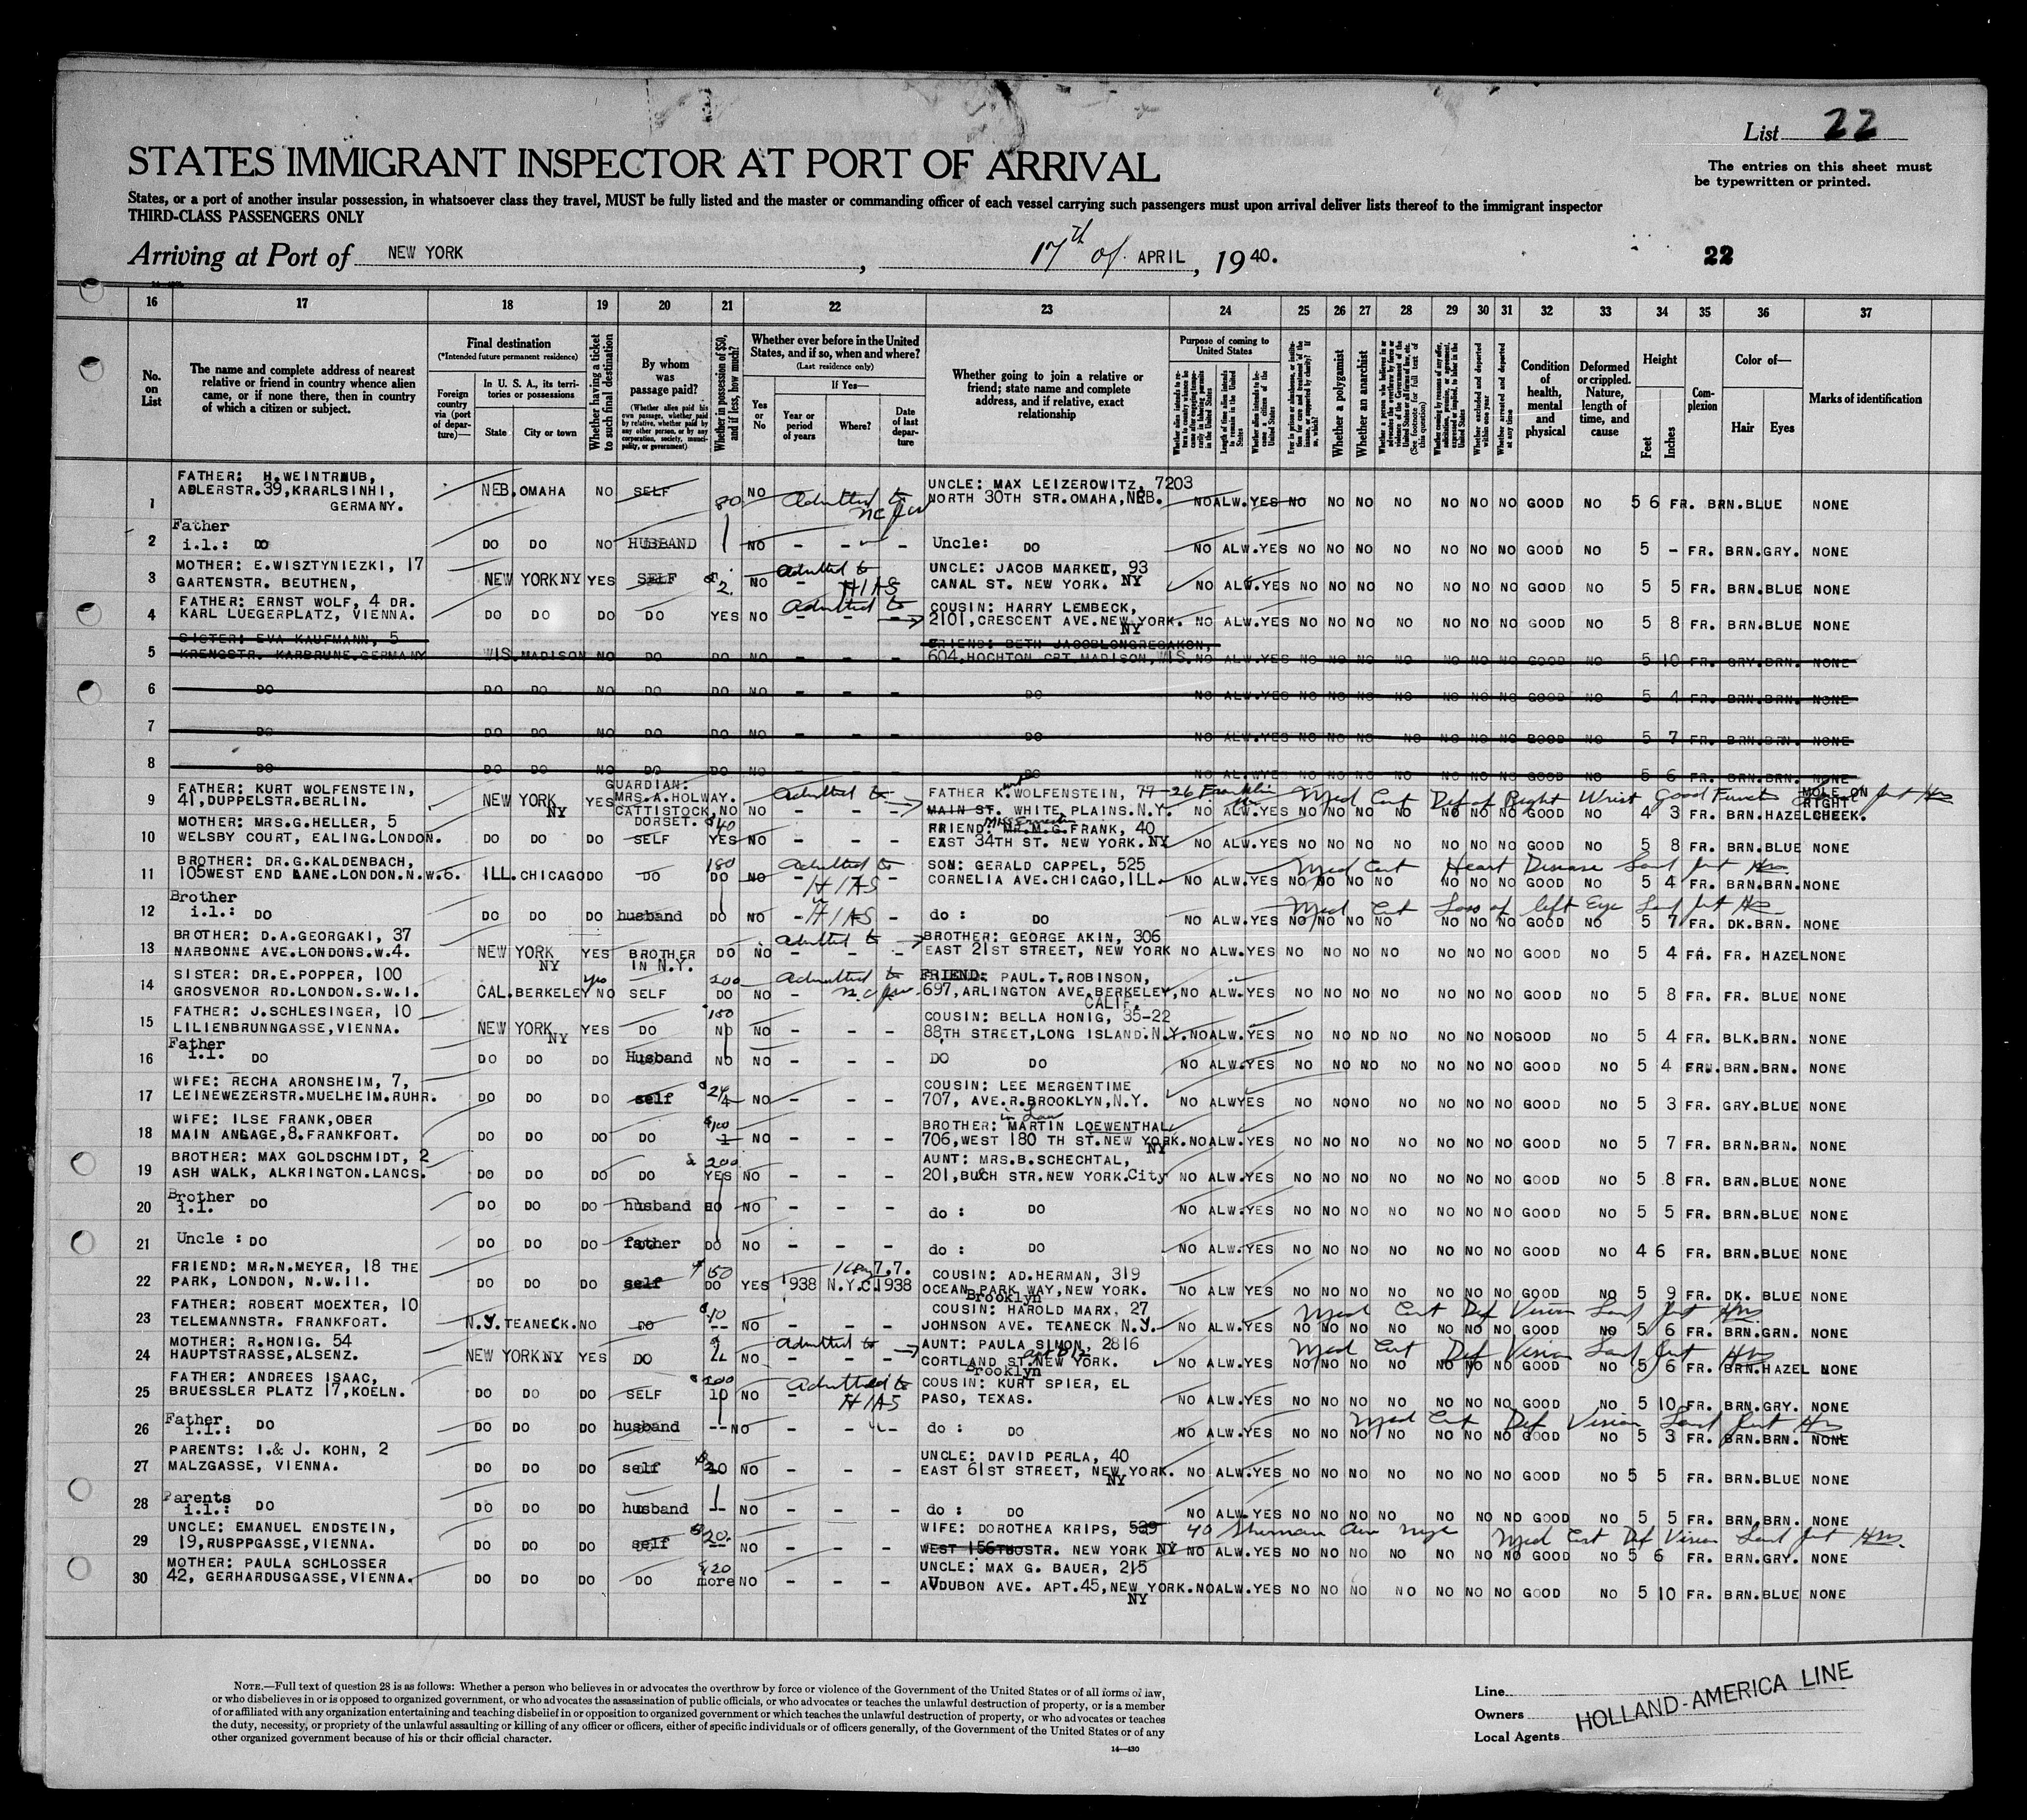 List 22
STATES IMMIGRANT INSPECTOR AT PORT OF ARRIVAL
The entries on this sheet must
be typewritten or printed.
States, or a port of another insular possession, in whatsoever class they travel, MUST be fully listed and the master or commanding officer of each vessel carrying such passengers must upon arrival deliver lists thereof to the immigrant inspector
THIRD-CLASS PASSENGERS ONLY
Arriving at Port of NEW YORK, 17th of APRIL, 1940.
22
16 17 18 19 20 21 22 23 24 25 26 27 28 29 30 31 32 33 34 35 36 37
No. on List
The name and complete address of nearest relative or friend in country whence alien came, or if none there, then in country of which a citizen or subject.
Final destination
(*Intended future permanent residence)
Foreign country via (port of departure)—
In U. S. A., its territories or possessions
State City or town
Whether having a ticket to such final destination
By whom was passage paid?
(Whether alien paid his own passage, whether paid by relative, whether paid by any other person, or by any corporation, society, municipality, or government)
Whether in possession of $50, and if less, how much?
Whether ever before in the United States, and if so, when and where?
(Last residence only)
Yes or No
If Yes—
Year or period of years
Where?
Date of last departure
Whether going to join a relative or friend; state name and complete address, and if relative, exact relationship
Purpose of coming to United States
Whether a polygamist
Whether an anarchist
Condition of health, mental and physical
Deformed or crippled. Nature, length of time, and cause
Height
Feet Inches
Complexion
Color of—
Hair Eyes
Marks of identification
1 FATHER: H.WEINTRAUB, ADLERSTR.39,KRARLSINHI, GERMANY. NEB. OMAHA NO SELF 80 NO Admitted to UNCLE: MAX LEIZEROWITZ, 7203 NORTH 30TH STR.OMAHA,NEB. NO ALW. YES NO NO NO NO NO NO NO GOOD NO 5 6 FR. BRN. BLUE NONE
2 Father i.l.: DO DO DO NO HUSBAND NO - - - Uncle: DO NO ALW. YES NO NO NO NO NO NO NO GOOD NO 5 - FR. BRN. GRY. NONE
3 MOTHER: E.WISZTYNIEZKI, 17 GARTENSTR. BEUTHEN, NEW YORK NY YES SELF 2. NO Admitted to HIAS UNCLE: JACOB MARKEL, 93 CANAL ST. NEW YORK. NY NO ALW. YES NO NO NO NO NO NO NO GOOD NO 5 5 FR. BRN. BLUE NONE
4 FATHER: ERNST WOLF, 4 DR. KARL LUEGERPLATZ, VIENNA. DO DO DO DO YES NO Admitted to - - - COUSIN: HARRY LEMBECK, 2101,CRESCENT AVE.NEW YORK. NY NO ALW. YES NO NO NO NO NO NO NO GOOD NO 5 8 FR. BRN. BLUE NONE
5 SISTER: EVA KAUFMANN, 5 KRENGSTR. KARBRUNE.GERMANY WIS. MADISON NO DO DO NO - - - FRIEND: BETH JACOBLONGREGAKON, 604,HOCHTON CRT MADISON,WIS. NO ALW. YES NO NO NO NO NO NO NO GOOD NO 5 10 FR. GRY. BRN. NONE
6 DO DO DO NO DO DO NO - - - DO NO ALW. YES NO NO NO NO NO NO NO GOOD NO 5 4 FR. BRN. BRN. NONE
7 DO DO DO NO DO DO NO - - - DO NO ALW. YES NO NO NO NO NO NO NO GOOD NO 5 7 FR. BRN. BRN. NONE
8 DO DO DO NO DO DO NO - - - DO NO ALW. YES NO NO NO NO NO NO NO GOOD NO 5 6 FR. BRN. BRN. NONE
9 FATHER: KURT WOLFENSTEIN, 41,DUPPELSTR.BERLIN. NEW YORK NY YES GUARDIAN: MRS.A.HOLWAY. CATTISTOCK, DORSET. NO NO Admitted to - - - FATHER K.WOLFENSTEIN, 26 Franklin MAIN ST. WHITE PLAINS.N.Y. NO ALW. YES NO NO NO NO NO NO NO GOOD NO Med Cert Def of Right Wrist Good Funct 4 3 FR. BRN. HAZEL MOLE ON RIGHT CHEEK.
10 MOTHER: MRS.G.HELLER, 5 WELSBY COURT, EALING.LONDON. DO DO DO SELF $40 YES NO - - - FRIEND: MR.M.G.FRANK, 40 EAST 34TH ST. NEW YORK. NY NO ALW. YES NO NO NO NO NO NO NO GOOD NO 5 8 FR. BRN. BLUE NONE
11 BROTHER: DR.G.KALDENBACH, 105WEST END LANE.LONDON.N.W.6. ILL. CHICAGO DO DO 180 DO NO Admitted to HIAS SON: GERALD CAPPEL, 525 CORNELIA AVE.CHICAGO,ILL. NO ALW. YES NO NO NO NO NO NO NO GOOD NO Med Cert Heart Disease 5 4 FR. BRN. BRN. NONE
12 Brother i.l.: DO DO DO DO husband DO NO - HIAS - do : DO NO ALW. YES NO NO NO NO NO NO NO GOOD NO Med Cert Loss of left Eye 5 7 FR. DK. BRN. NONE
13 BROTHER: D.A.GEORGAKI, 37 NARBONNE AVE.LONDONS.W.4. NEW YORK NY YES BROTHER IN N.Y. DO NO Admitted to - - - BROTHER: GEORGE AKIN, 306 EAST 21ST STREET, NEW YORK NO ALW. YES NO NO NO NO NO NO NO GOOD NO 5 4 FR. FR. HAZEL NONE
14 SISTER: DR.E.POPPER, 100 GROSVENOR RD.LONDON.S.W.I. CAL. BERKELEY yes NO SELF 200 DO NO Admitted to FRIEND: PAUL.T.ROBINSON, 697,ARLINGTON AVE.BERKELEY, CALIF. NO ALW. YES NO NO NO NO NO NO NO GOOD NO 5 8 FR. FR. BLUE NONE
15 FATHER: J.SCHLESINGER, 10 LILIENBRUNNGASSE,VIENNA. NEW YORK NY YES DO 150 NO NO - - - COUSIN: BELLA HONIG, 35-22 88TH STREET,LONG ISLAND.N.Y. NO ALW. YES NO NO NO NO NO NO NO GOOD NO 5 4 FR. BLK. BRN. NONE
16 Father i.l. DO DO DO DO Husband NO NO - - - DO DO NO ALW. YES NO NO NO NO NO NO NO GOOD NO 5 4 FRN. BRN. BRN. NONE
17 WIFE: RECHA ARONSHEIM, 7, LEINEWEZERSTR.MUELHEIM.RUHR. DO DO DO self NO - - - COUSIN: LEE MERGENTIME 707, AVE.R.BROOKLYN,N.Y. NO ALWYES NO NONO NO NO NO NO GOOD NO 5 3 FR. GRY. BLUE NONE
18 WIFE: ILSE FRANK,OBER MAIN ANLAGE,8.FRANKFORT. DO DO DO DO $100 NO - - - BROTHER: in Law MARTIN LOEWENTHAL 706,WEST 180 TH ST.NEW YORK. NY NO ALW. YES NO NO NO NO NO NO NO GOOD NO 5 7 FR. BRN. BRN. NONE
19 BROTHER: MAX GOLDSCHMIDT, 2 ASH WALK, ALKRINGTON.LANCS. DO DO DO DO $ 200 YES NO - - - AUNT: MRS.B.SCHECHTAL, 201,BUCH STR.NEW YORK.City NO ALW. YES NO NO NO NO NO NO NO GOOD NO 5 8 FR. BRN. BLUE NONE
20 Brother i.l. DO DO DO DO husband NO - - - do : DO NO ALW. YES NO NO NO NO NO NO NO GOOD NO 5 5 FR. BRN. BLUE NONE
21 Uncle : DO DO DO DO father DO NO - - - do : DO NO ALW. YES NO NO NO NO NO NO NO GOOD NO 4 6 FR. BRN. BLUE NONE
22 FRIEND: MR.N.MEYER, 18 THE PARK, LONDON, N.W.II. DO DO DO self $ 50 DO YES 1938 N.Y.C. 7.7. 1938 COUSIN: AD.HERMAN, 319 OCEAN PARK WAY,NEW YORK. Brooklyn NO ALW YES NO NO NO NO NO NO NO GOOD NO 5 9 FR. DK. BLUE NONE
23 FATHER: ROBERT MOEXTER, 10 TELEMANNSTR. FRANKFORT. N.Y. TEANECK. NO DO $10 -- NO - - - COUSIN: HAROLD MARX, 27 JOHNSON AVE. TEANECK N.Y. NO ALW. YES NO NO NO NO NO NO NO GOOD NO Med Cert Def Vision 5 6 FR. BRN. GRN. NONE
24 MOTHER: R.HONIG. 54 HAUPTSTRASSE,ALSENZ. NEW YORK NY YES DO NO Admitted to - - - AUNT: PAULA SIMON, 2816 CORTLAND ST.NEW YORK. Brooklyn NO ALW. YES NO NO NO NO NO NO NO GOOD NO Med Cert Def Vision 5 6 FR. BRN. HAZEL NONE
25 FATHER: ANDREES ISAAC, BRUESSLER PLATZ 17,KOELN. DO DO DO SELF 10 NO Admitted to HIAS COUSIN: KURT SPIER, EL PASO, TEXAS. NO ALW. YES NO NO NO NO NO NO NO GOOD NO 5 10 FR. BRN. GRY. NONE
26 Father i.l.: DO DO DO DO husband -- NO - - do : DO NO ALW. YES NO NO NO NO NO NO NO GOOD NO Med Cert Def Vision 5 3 FR. BRN. BRN. NONE
27 PARENTS: I.& J. KOHN, 2 MALZGASSE, VIENNA. DO DO DO self NO - - - UNCLE: DAVID PERLA, 40 EAST 61ST STREET, NEW YORK. NY NO ALW. YES NO NO NO NO NO NO NO GOOD NO 5 5 FR. BRN. BLUE NONE
28 Parents i.l.: DO DO DO DO husband -- NO - - - do : DO NO ALW. YES NO NO NO NO NO NO NO GOOD NO 5 5 FR. BRN. BRN. NONE
29 UNCLE: EMANUEL ENDSTEIN, 19,RUSPPGASSE,VIENNA. DO DO DO self $20. -- NO - - - WIFE: DOROTHEA KRIPS, 539 WEST 156THSTR. NEW YORK NY 40 Sherman Ave NYC NO ALW. YES NO NO NO NO NO NO NO GOOD NO Med Cert Def Vision 5 6 FR. BRN. GRY. NONE
30 MOTHER: PAULA SCHLOSSER 42, GERHARDUSGASSE,VIENNA. DO DO DO DO $20 more NO - - - UNCLE: MAX G. BAUER, 215 AUDUBON AVE. APT.45,NEW YORK. NY NO ALW. YES NO NO NO NO NO NO NO GOOD NO 5 10 FR. BRN. BLUE NONE
NOTE.—Full text of question 28 is as follows: Whether a person who believes in or advocates the overthrow by force or violence of the Government of the United States or of all forms of law,
or who disbelieves in or is opposed to organized government, or who advocates the assassination of public officials, or who advocates or teaches the unlawful destruction of property, or is a member
of or affiliated with any organization entertaining and teaching disbelief in or opposition to organized government or which teaches the unlawful destruction of property, or who advocates or teaches
the duty, necessity, or propriety of the unlawful assaulting or killing of any officer or officers, either of specific individuals or of officers generally, of the Government of the United States or of any
other organized government because of his or their official character.
14—430
Line
Owners
Local Agents
HOLLAND-AMERICA LINE